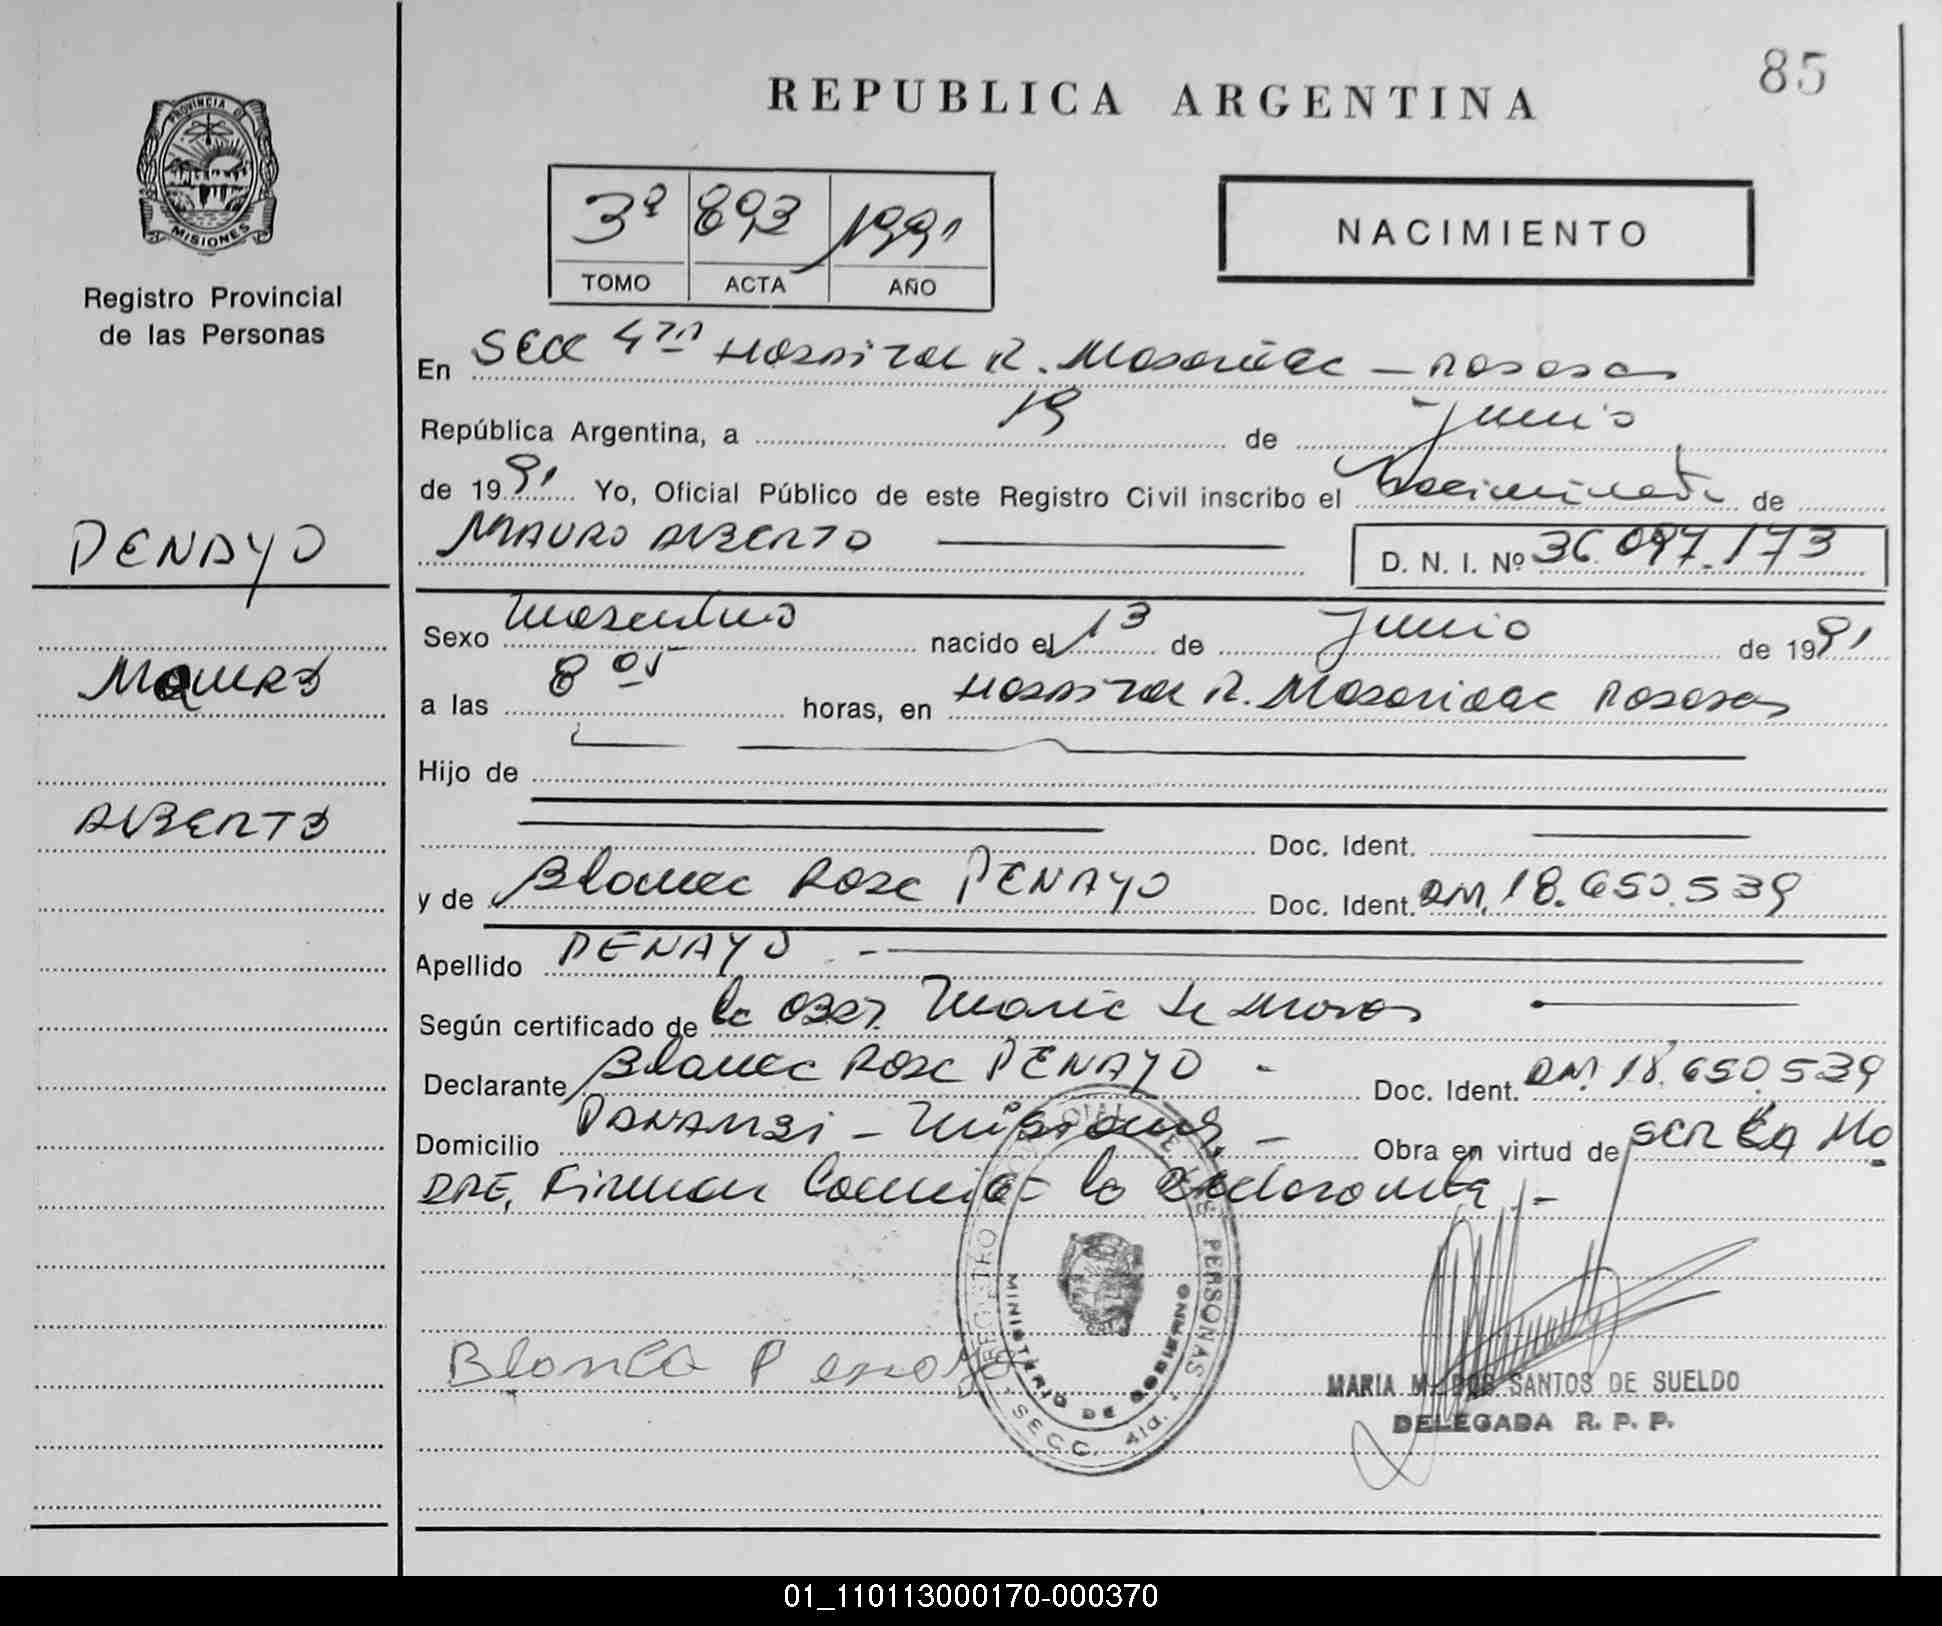 85
REPUBLICA ARGENTINA
PROVINCIA DE
MISIONES
Registro Provincial
de las Personas
3º 893 1991
TOMO ACTA AÑO
NACIMIENTO
En Secc 4ta Hospital R. Madariaga - Posadas
República Argentina, a 19 de Junio
de 1991 Yo, Oficial Público de este Registro Civil inscribo el Nacimiento de
MAURO ALBERTO D. N. I. Nº 36.097.173
PENAYO
MAURO
ALBERTO
Sexo Masculino nacido el 13 de Junio de 1991
a las 8 05 horas, en Hospital R. Madariaga Posadas
Hijo de
Doc. Ident.
y de Blanca Rosa PENAYO Doc. Ident. 18.650.539
Apellido PENAYO
Según certificado de la Obst. Maria de
Declarante Blanca Rosa PENAYO - Doc. Ident. 18.650.539
Domicilio PANAMBI - Misiones - Obra en virtud de SER LA MA
DRE, Firman Conmigo la Declarante -
REGISTRO PROVINCIAL DE LAS PERSONAS
MINISTERIO DE GOBIERNO
SECC. 4ta.
Blanca Penayo
MARIA M. DOS SANTOS DE SUELDO
DELEGADA R. P. P.
01_110113000170-000370